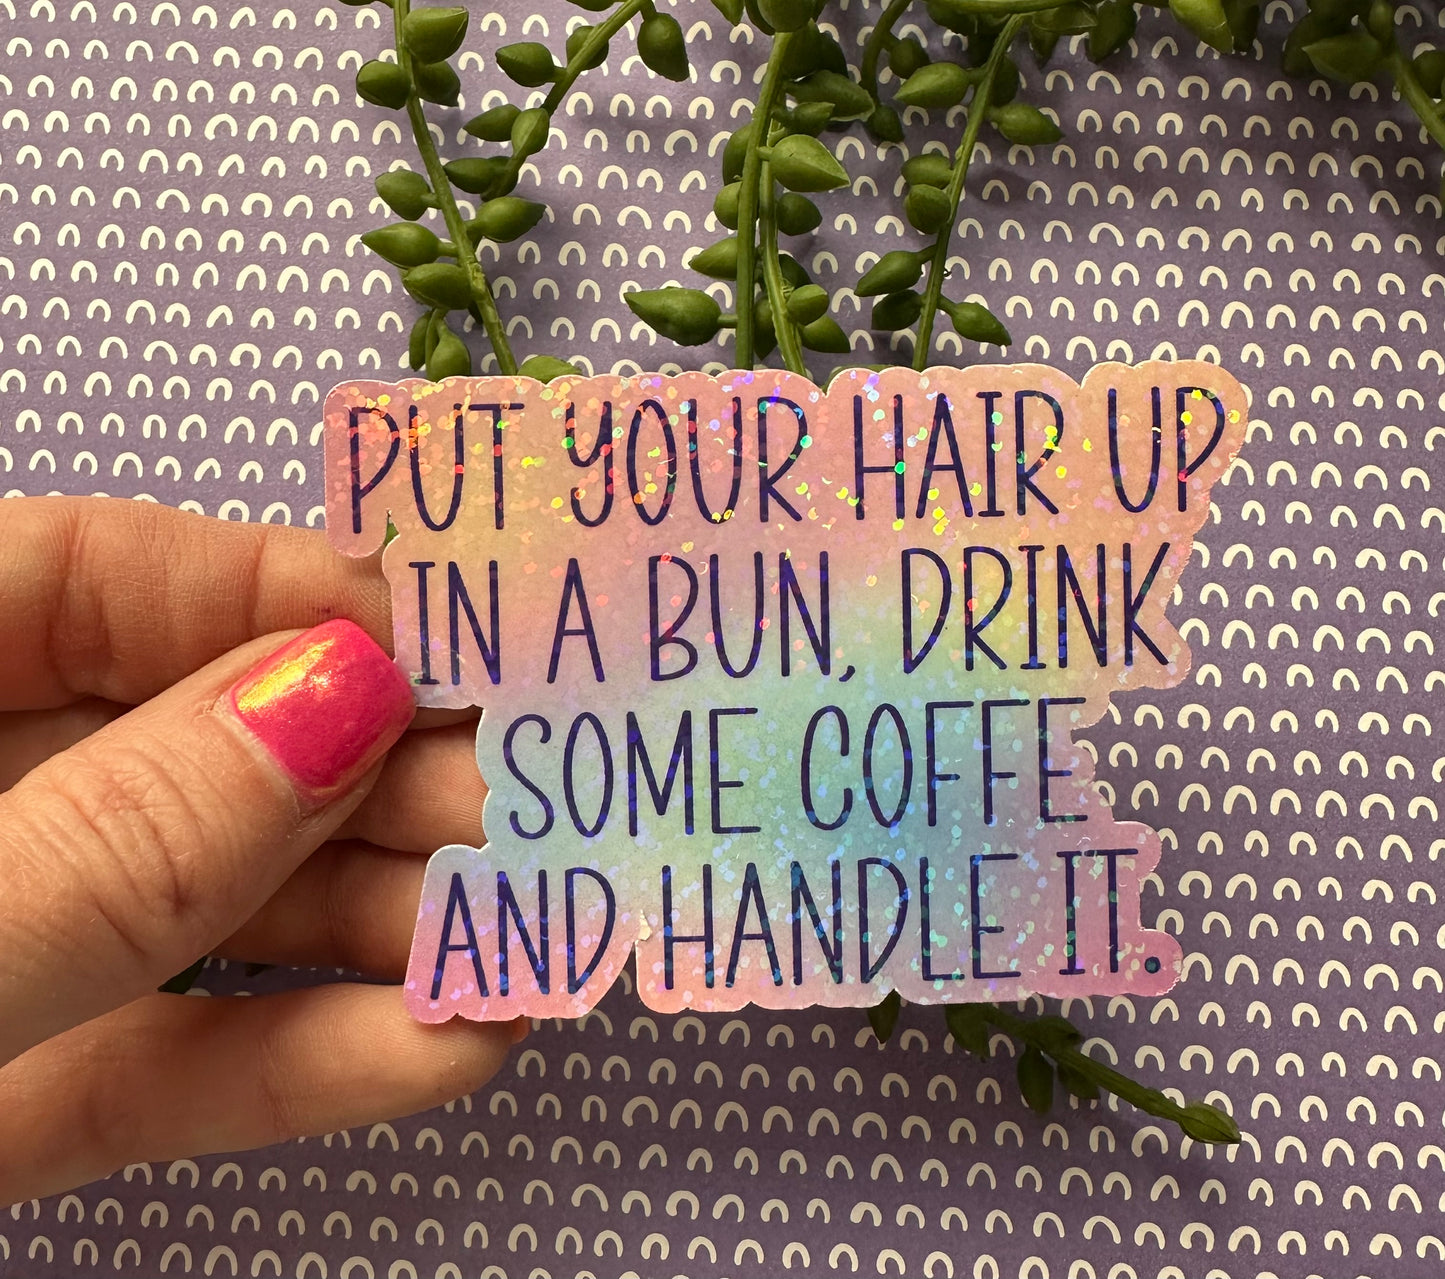 PUT YOUR HAIR UP
IN A BUN, DRINK
SOME COFFE
AND HANDLE IT.